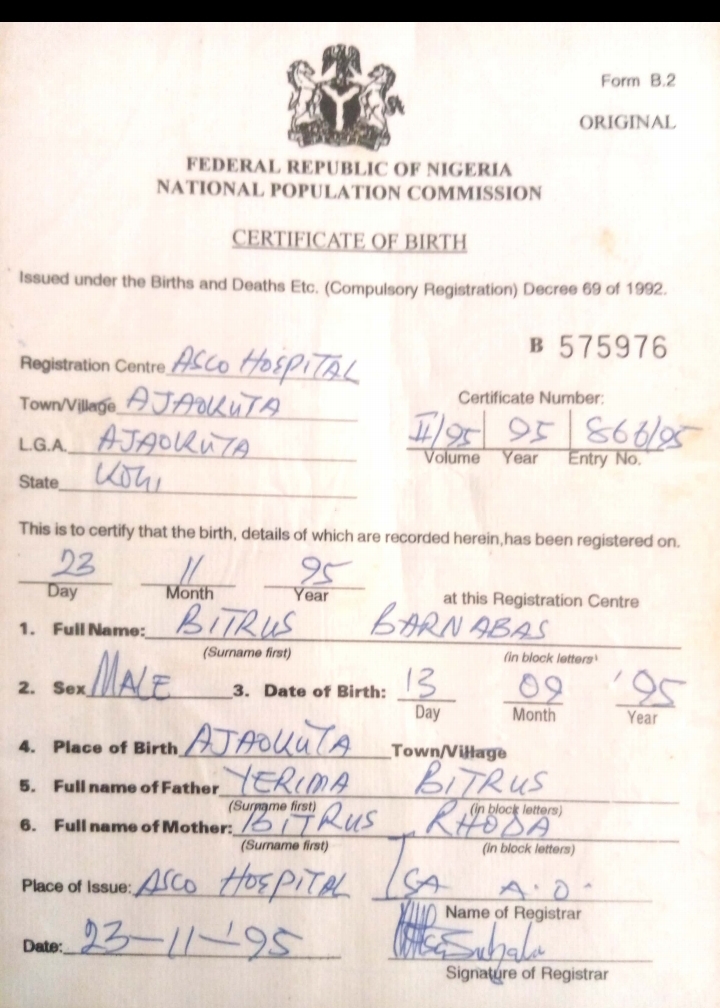 Form B.2
ORIGINAL
FEDERAL REPUBLIC OF NIGERIA
NATIONAL POPULATION COMMISSION
CERTIFICATE OF BIRTH
Issued under the Births and Deaths Etc. (Compulsory Registration) Decree 69 of 1992.
B 575976
Registration Centre ASCO HOSPITAL
Town/Village AJAOKUTA
Certificate Number:
L.G.A. AJAOKUTA
II/95 95 866/95
Volume Year Entry No.
State KOGI
This is to certify that the birth, details of which are recorded herein,has been registered on.
23 11 95
Day Month Year at this Registration Centre
1. Full Name: BITRUS BARNABAS
(Surname first) (in block letters)
2. Sex MALE 3. Date of Birth: 13 09 '95
Day Month Year
4. Place of Birth AJAOKUTA Town/Village
5. Full name of Father YERIMA BITRUS
(Surname first) (in block letters)
6. Full name of Mother: BITRUS RHODA
(Surname first) (in block letters)
Place of Issue: ASCO HOSPITAL ISA A.O.
Name of Registrar
Date: 23-11-'95
Signature of Registrar